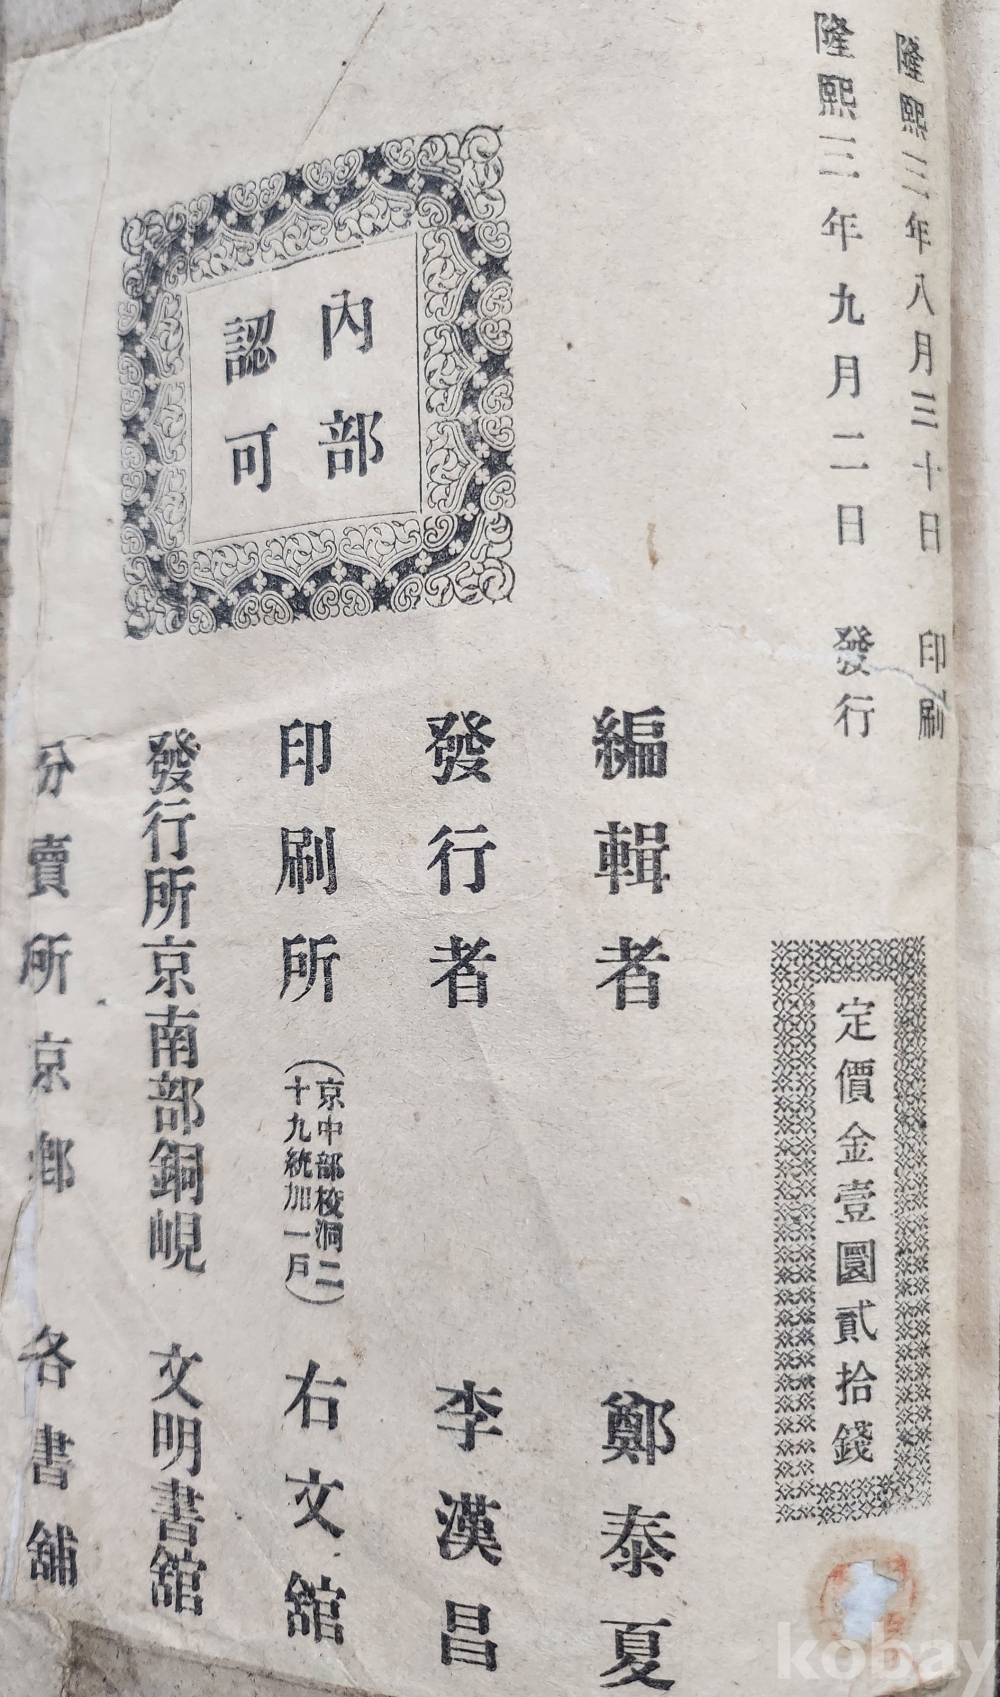 隆熙三年八月三十日 印刷
隆熙三年九月二日 發行
定價金壹圜貳拾錢
內部
認可
編輯者 鄭泰夏
發行者 李漢昌
印刷所 (京中部校洞二十九統加一戶) 右文舘
發行所京南部銅峴 文明書舘
分賣所京鄕 各書舖
kobay